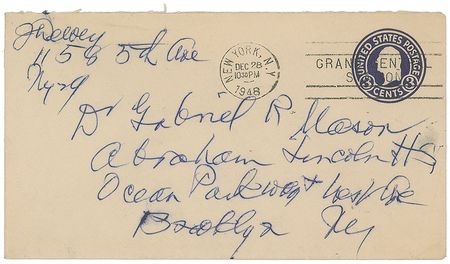 J Dewey
1158 5th Ave
NY 29
NEW YORK, N.Y.
DEC 28
10 PM
1948
GRAND CENTRAL
STATION
UNITED STATES POSTAGE
3 CENTS 3
Dr Gabriel R Mason
Abraham Lincoln HS
Ocean Parkway + West Ave
Brooklyn NY